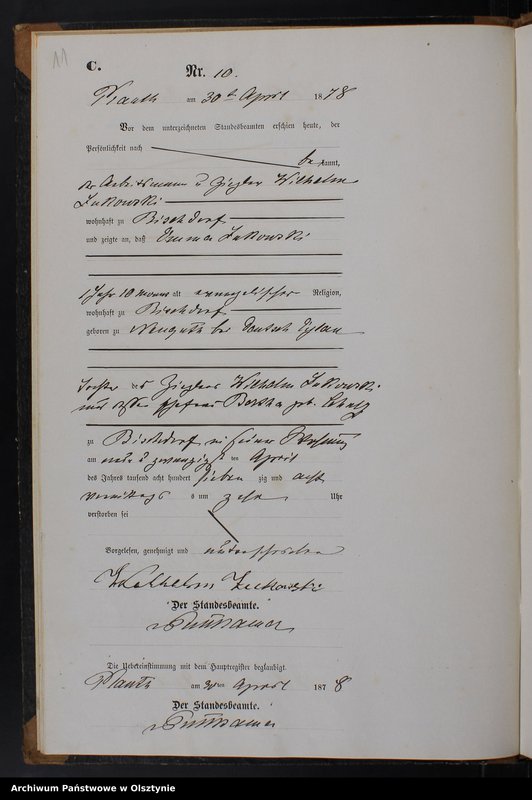 11
C.
Nr. 10.
Plauth am 30ten April 1878
Vor dem unterzeichneten Standesbeamten erschien heute, der
Persönlichkeit nach
be kannt,
der Arbeitsmann u Ziegler Wilhelm
Zukowski
wohnhaft zu Bischdorf
und zeigte an, daß Emma Zukowski
1 Jahr 10 Monat alt evangelischer Religion,
wohnhaft zu Bischdorf
geboren zu Neuguth bei Deutsch Eylau
Tochter des Zieglers Wilhelm Zukowski
und dessen Ehefrau Bertha geb. Schulz
zu Bischdorf in seiner Wohnung
am neun u zwanzigst ten April
des Jahres tausend acht hundert sieben zig und acht
vormittags s um zehn Uhr
verstorben sei
Vorgelesen, genehmigt und unterschrieben
Wilhelm Zukowski
Der Standesbeamte.
Die Uebereinstimmung mit dem Hauptregister beglaubigt.
Plauth am 30ten April 1878
Der Standesbeamte.
Archiwum Państwowe w Olsztynie